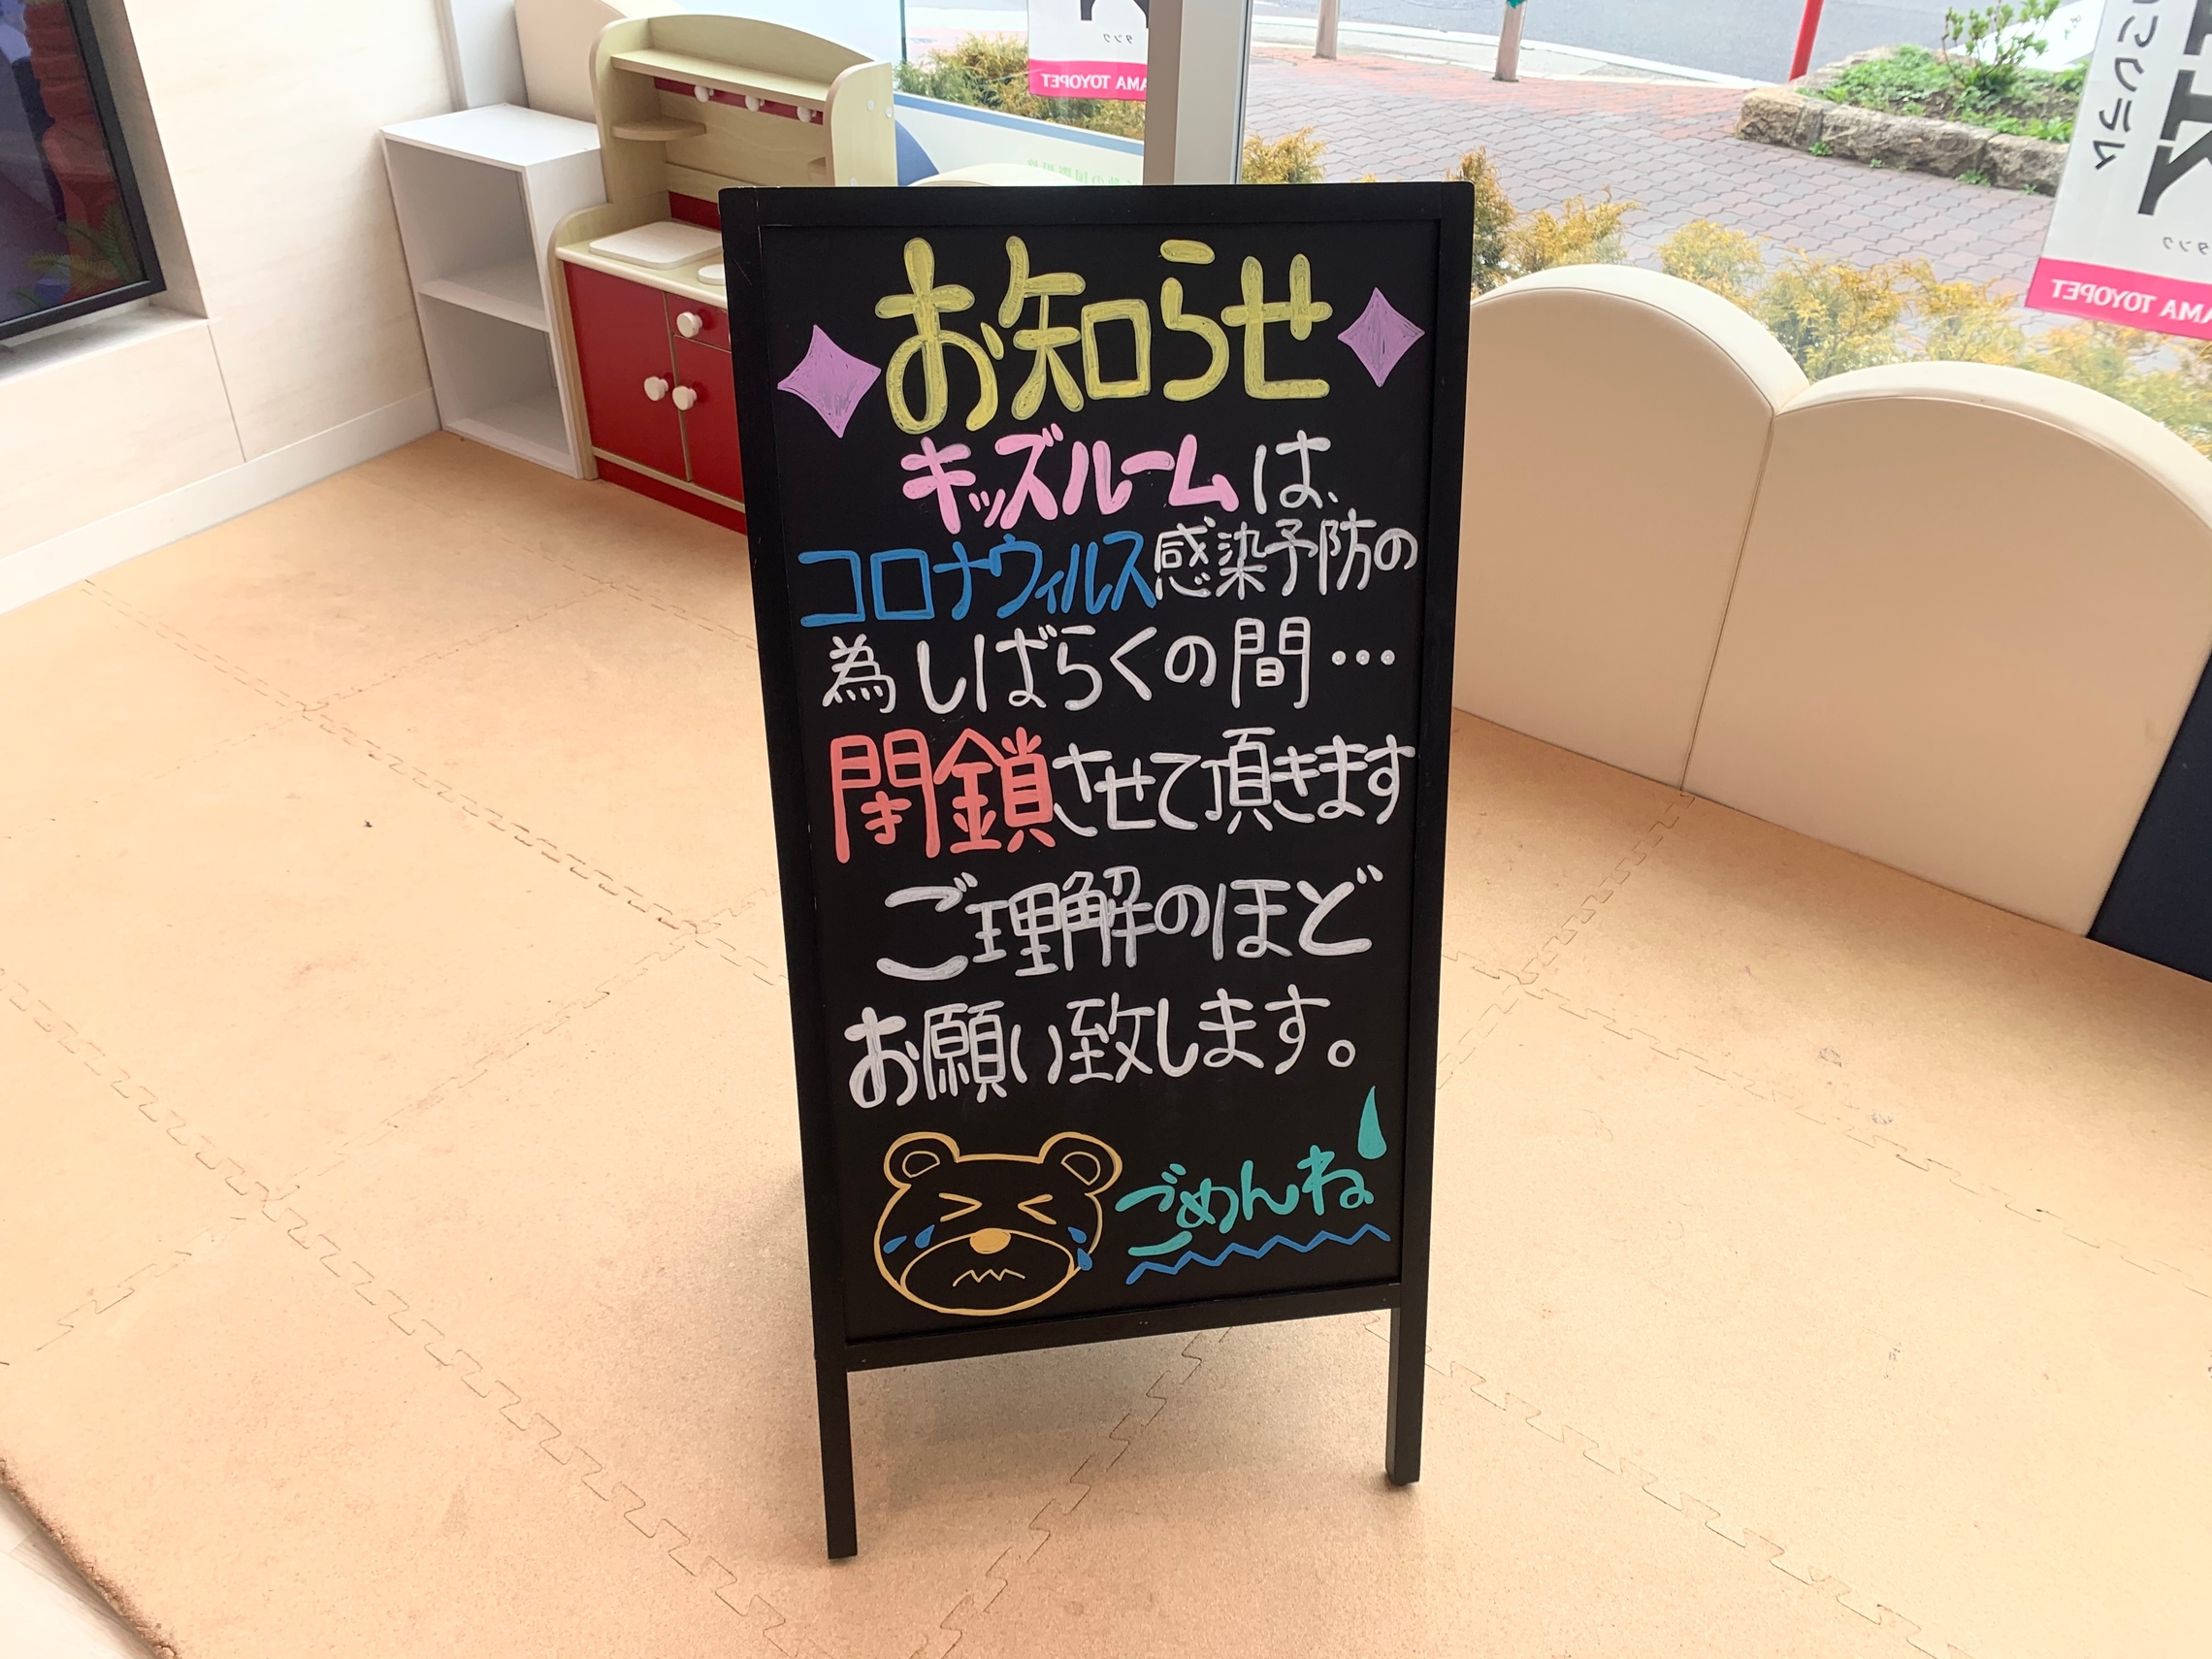 お知らせ
キッズルームは、
コロナウィルス感染予防の
為しばらくの間…
閉鎖させて頂きます
ご理解のほど
お願い致します。
ごめんね
タンク
AMA TOYOPET
タンク
AMA TOYOPET